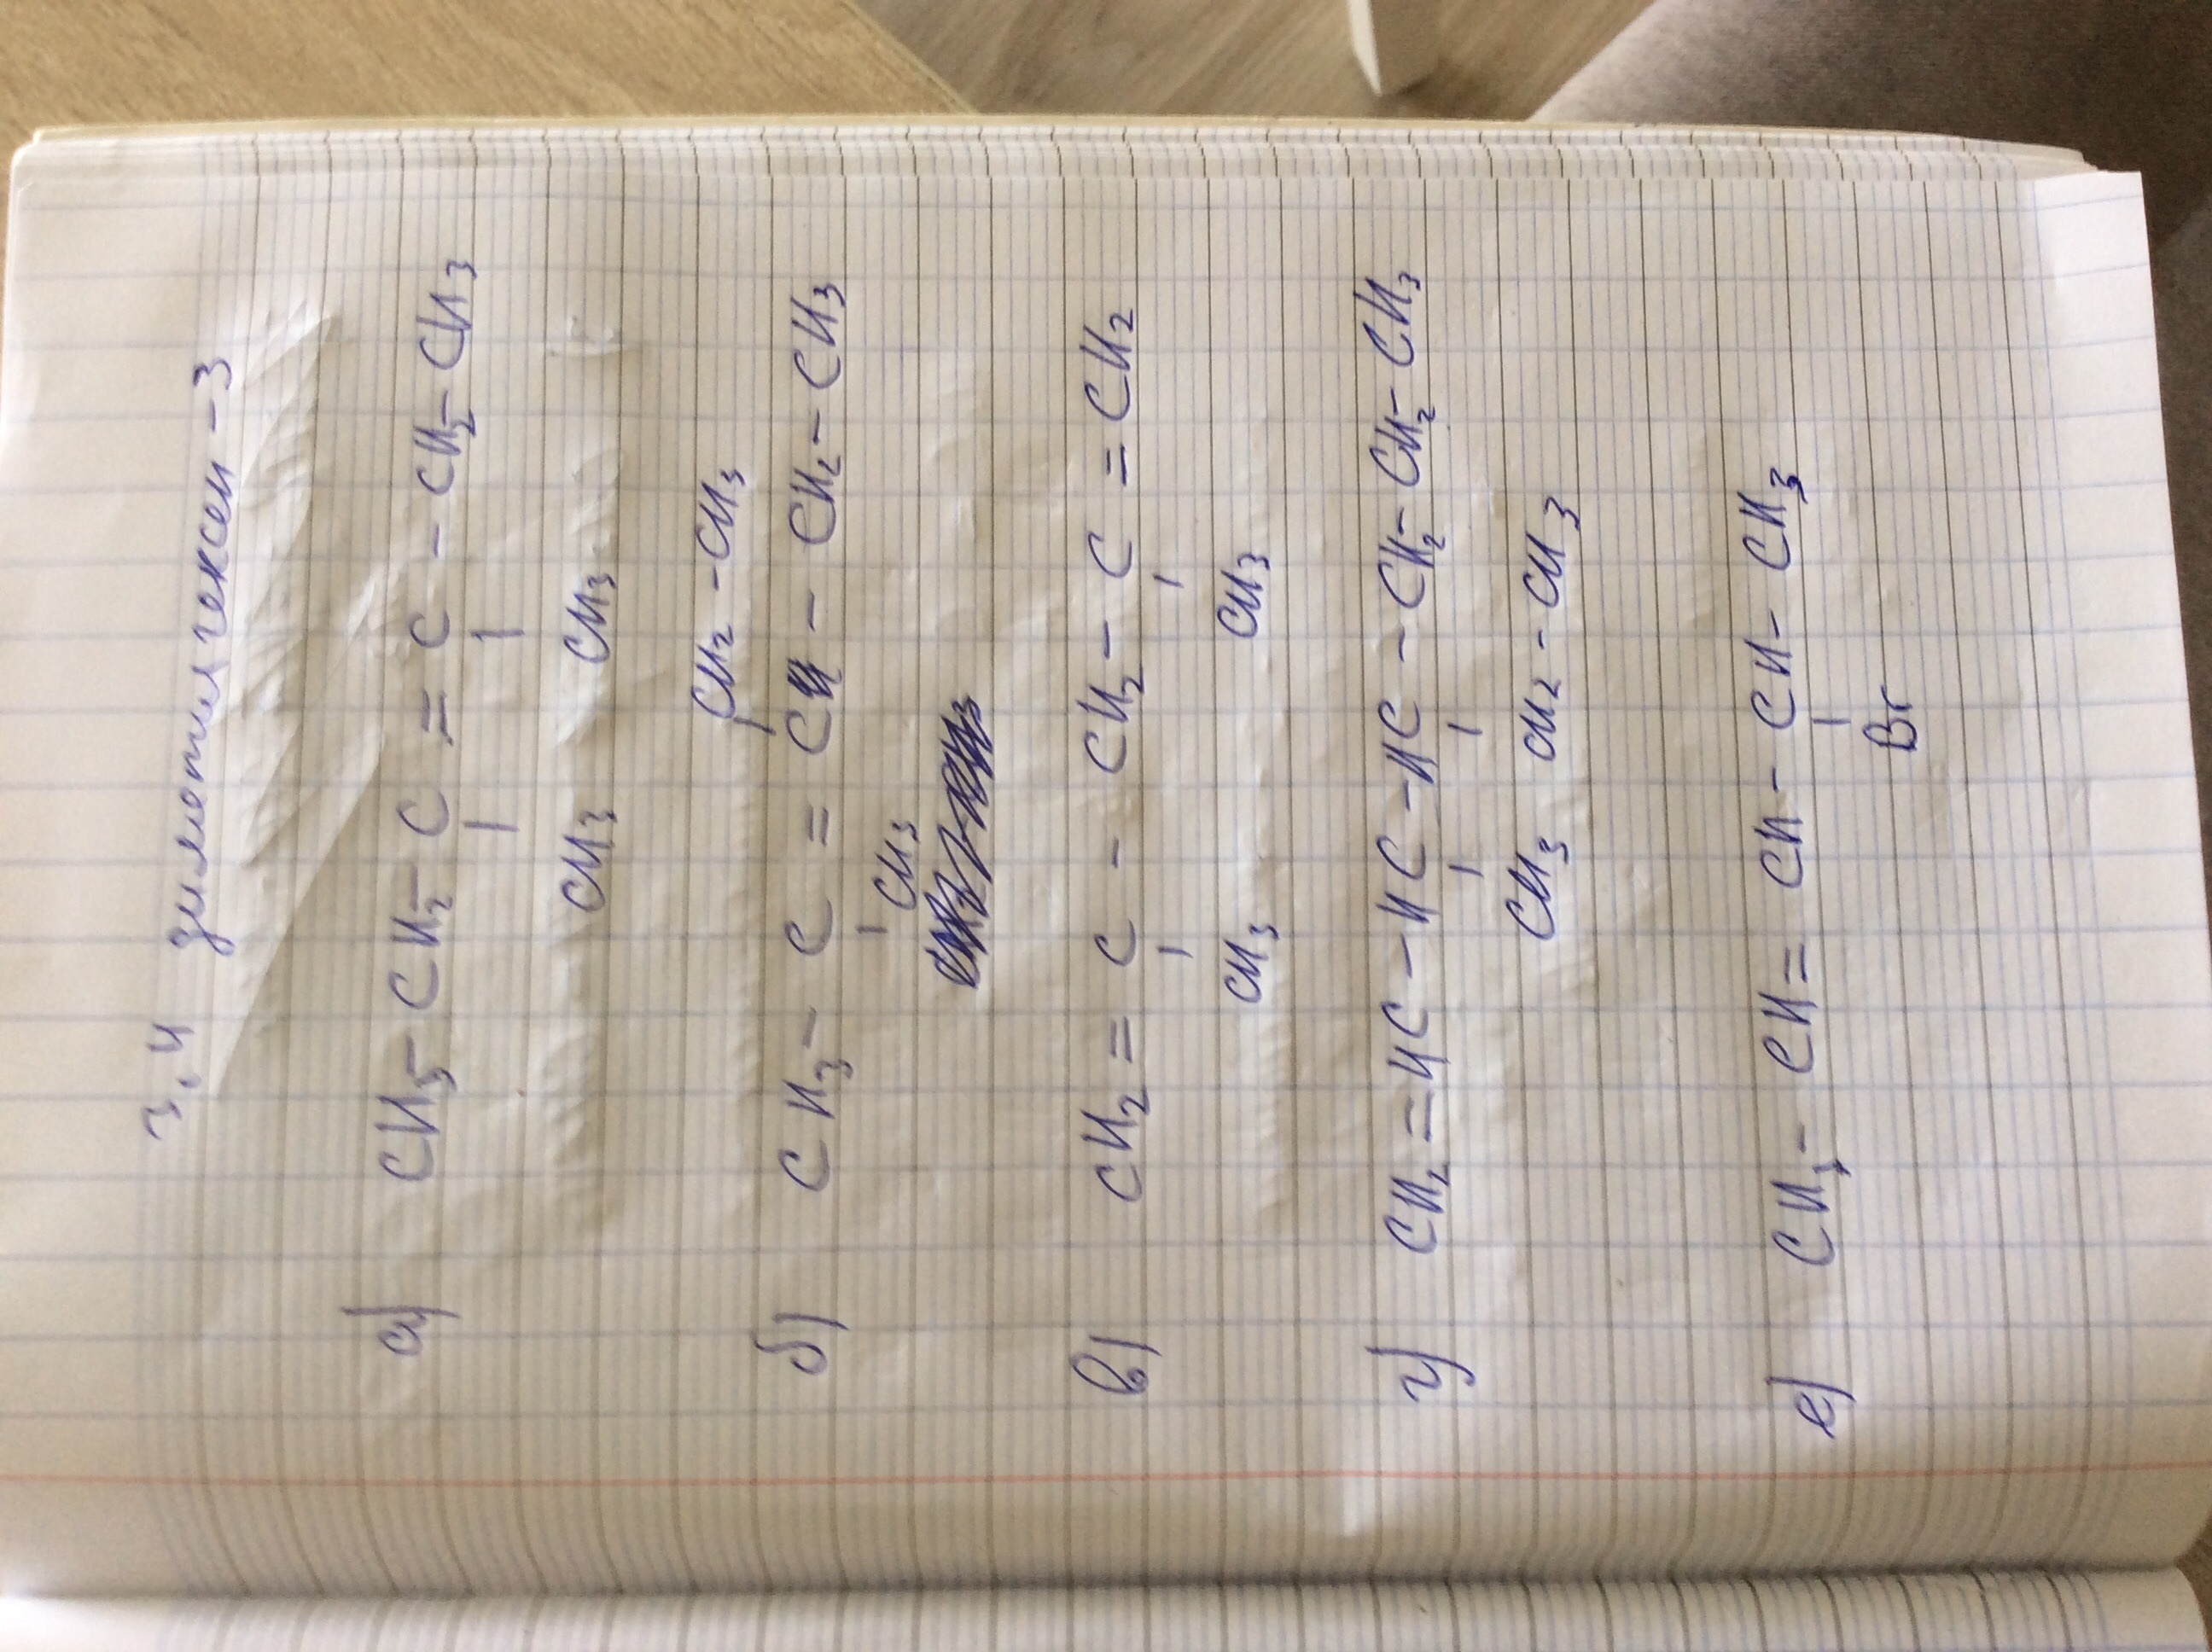 3,4 диметилгексен-3
а) CH3-CH2-C=C-CH2-CH3
CH3 CH3
CH2-CH3
б) CH3-C=C-CH2-CH3
CH3
в) CH2=C-CH2-C=CH2
CH3 CH3
г) CH2=HC-HC-HC-CH2-CH2-CH3
CH3 CH2-CH3
е) CH3-CH=CH-CH-CH3
Br